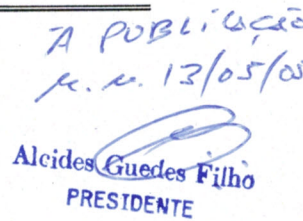 A PUBLICAÇÃO
13/05/05
Alcides Guedes Filho
PRESIDENTE